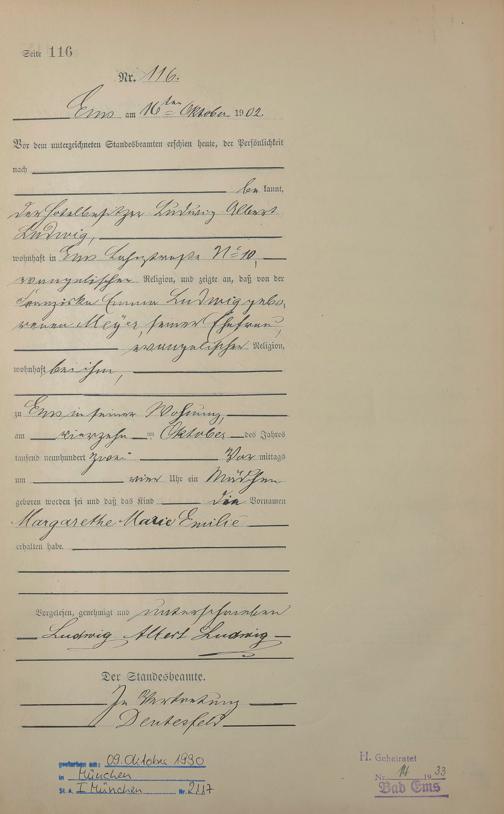 Seite 116
Nr. 116.
Ems am 16ten Oktober 1902
Vor dem unterzeichneten Standesbeamten erschien heute, der Persönlichkeit
nach
be kannt,
der Hotelbesitzer Ludwig Albert
Ludwig,
wohnhaft in Ems Lahnstraße No 10,
evangelischer Religion, und zeigte an, daß von der
Franziska Emma Ludwig gebo,
renen Meyer, seiner Ehefrau,
evangelischer Religion,
wohnhaft bei ihm,
zu Ems in seiner Wohnung,
am vierzehn Oktober des Jahres
tausend neunhundert zwei Vor mittags
um vier Uhr ein Mädchen
geboren worden sei und daß das Kind die Vornamen
Margarethe Marie Emilie
erhalten habe.
Vorgelesen, genehmigt und unterschrieben
Ludwig Albert Ludwig
Der Standesbeamte.
In Vertretung
gestorben am: 09. Oktober 1990
in München
St. A. I München Nr. 2117
H. Geheiratet
Nr. 1933
Bad Ems